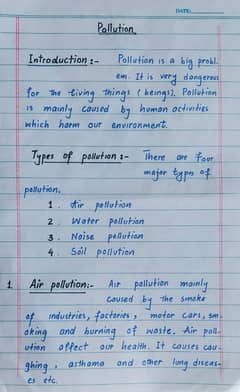 DATE:
Pollution
Introduction :- Pollution is a big probl.
em. It is very dangerous
for the living things (beings). Pollution
is mainly caused by human activities
which harm our environment.
Types of pollution :- There are four
major types of
pollution.
1. Air pollution
2. Water pollution
3. Noise pollution
4. Soil pollution
1. Air pollution:- Air pollution mainly
caused by the smoke
of industries, factories, motor cars, sm
oking and burning of waste. Air poll-
ution affect our health. It causes cou-
ghing, asthama and other lung diseas-
es etc.